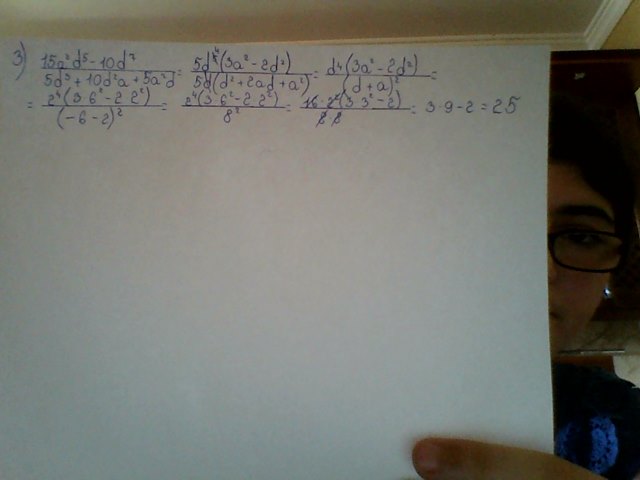 3) (15a²d⁵ - 10d⁷)/(5d³ + 10d²a + 5a²d) = 5d⁴(3a² - 2d²)/5d(d² + 2ad + a²) = d⁴(3a² - 2d²)/(d + a)² =
= 2⁴(3 6² - 2 2²)/(-6 - 2)² = 2⁴(3 6² - 2 2²)/8² = 16 · 2²(3 3² - 2)/8 8 = 3 · 9 - 2 = 25